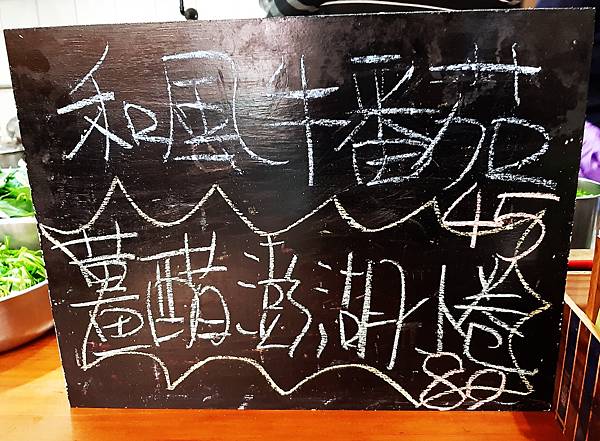 和風牛番茄
45
薑醋澎湖小卷
80